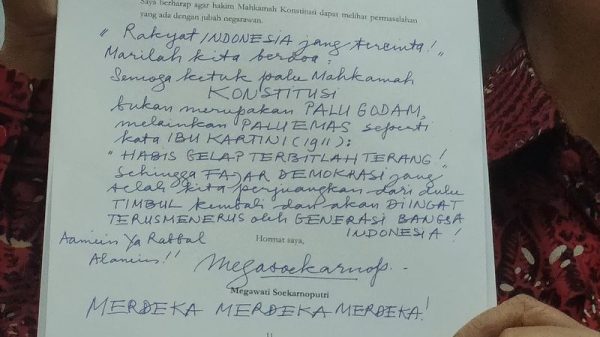 Saya berharap agar hakim Mahkamah Konstitusi dapat melihat permasalahan
yang ada dengan jubah negarawan.
" Rakyat INDONESIA yang tercinta! "
Marilah kita berdoa :
Semoga ketuk palu Mahkamah
KONSTITUSI
bukan merupakan PALU GODAM,
melainkan PALU EMAS seperti
kata IBU KARTINI (1911) :
" HABIS GELAP TERBITLAH TERANG! "
Sehingga FAJAR DEMOKRASI yang
telah kita perjuangkan dari dulu
TIMBUL kembali dan akan DIINGAT
TERUSMENERUS oleh GENERASI BANGSA
INDONESIA !
Aamiin Ya Rabbal
Alamiin!!
Hormat saya,
Megawati Soekarnoputri
MERDEKA MERDEKA MERDEKA!
11